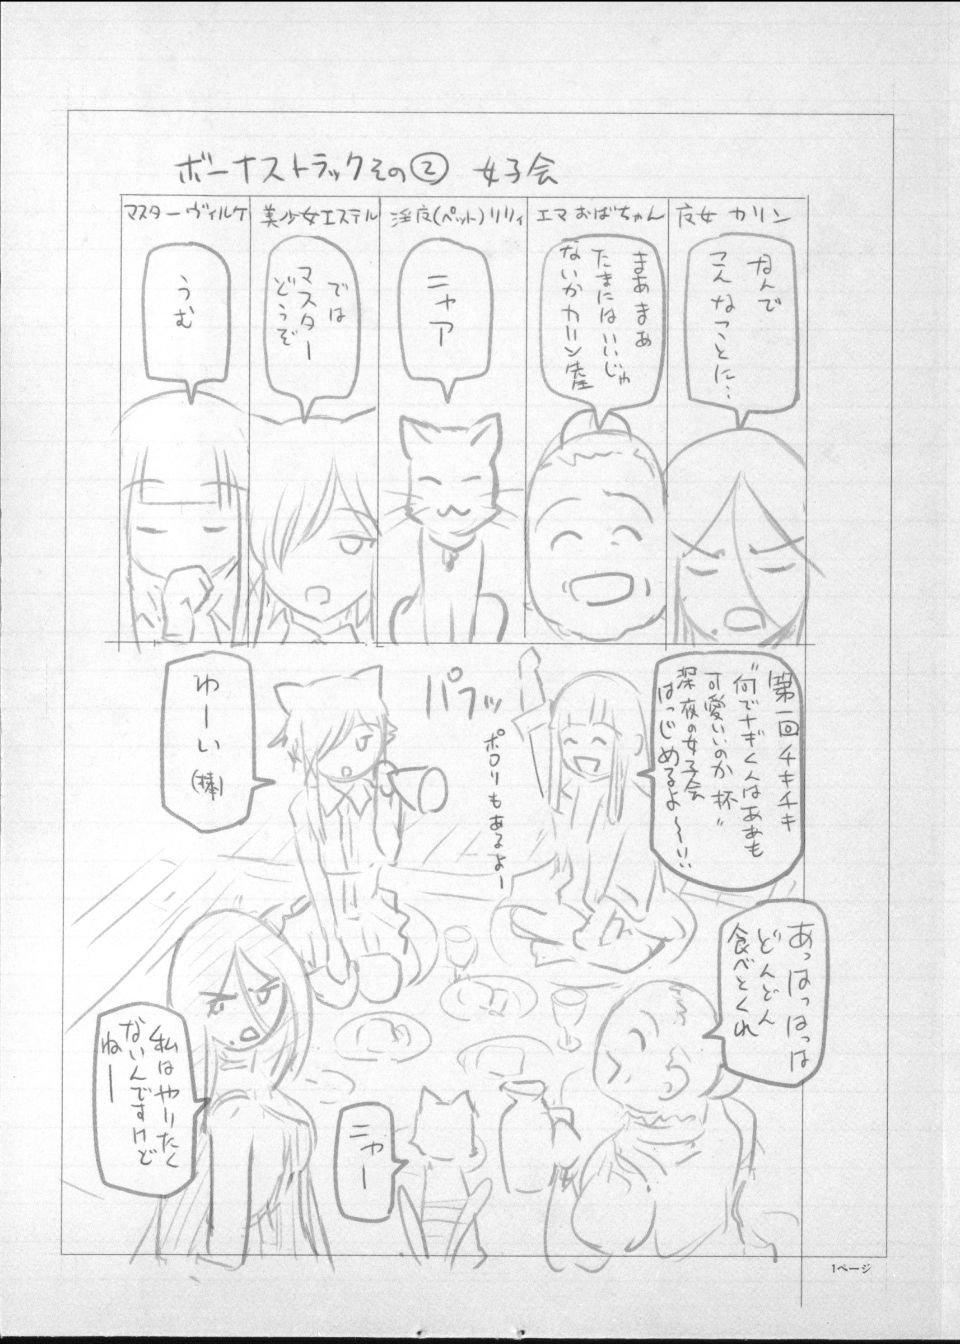 ボーナストラックその② 女子会
庋女 カリン
なんで
こんなことに…
エマ おばちゃん
まあまあ
たまにはいいじゃ
ないかカリン産
淫庋(ペット)リリィ
ニャア
美少女エステル
では
マスター
どうぞ
マスターヴィルケ
うむ
第一回チキチキ
"何でナギくんはああも
可愛いいのか杯"
深夜の女子会
はっじめるよ〜!!
パフッ
ポロリもあるよー
わーい
(棒)
あっはっはっは
どんどん
食べとくれ
私はやりたく
ないんですけど
ねー
ニャー
1ページ